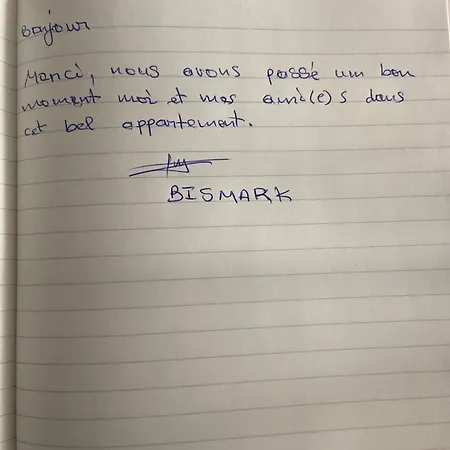 Bonjour
Merci, nous avons passé um bon
moment moi et mes ami(e)s dans
cet bel appartement.
BISMARK